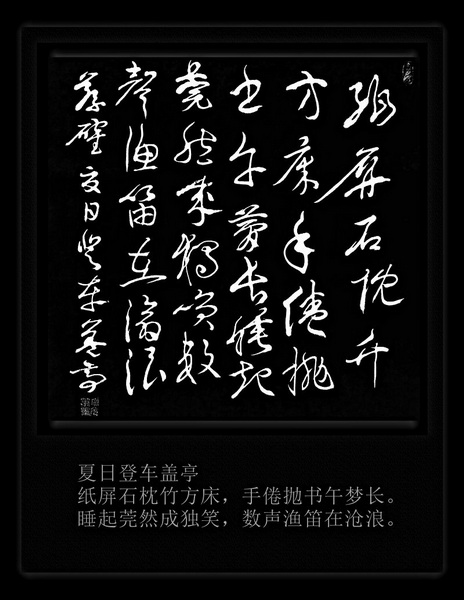 紙屏石枕竹
方床手倦抛
书午夢长睡起
莞然成獨笑数
聲漁笛在滄浪
蔡確夏日登车蓋亭
夏日登车盖亭
纸屏石枕竹方床，手倦抛书午梦长。
睡起莞然成独笑，数声渔笛在沧浪。